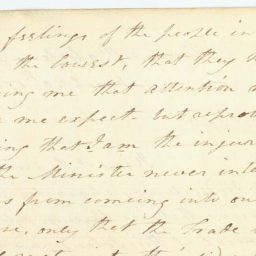 feelings of the people in
the lowest, that they
ing me that attention
me expect - but repro
ing that I am the injur
the Minister never inte
s from coming into ou
re, only that the Trade